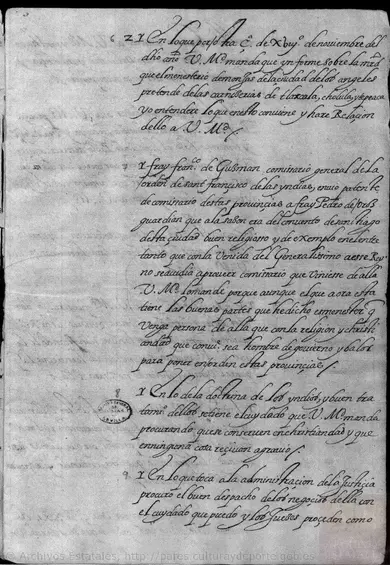 2 En lo que por otra Ce de xxvjº de noviembre del
dho año V. Mg manda que ynforme sobre la mrd
que el ministerio de monjas de la ciudad de los angeles
pretende de las carnicerias de tlaxcala, cholula, y tepeaca
yo entendere lo que en esto conviene y hare Relaçion
dello a V. Mg
fray franco de Guzman comisario general de la
orden de sant francisco de las yndias, envio patente
de comisario destas provinçias a fray Pedro de
guardian que a la sazon era del convento de santiago
desta çiudad buen religiosso y de exemplo en el entre
tanto que con la venida del Generalissimo a esse Rey
no se acudia a proveer comisario que viniesse de alla
V. Mg lo mande porque aunque el que aora esta
tiene las buenas partes que he dicho es menester q
venga persona de alla que con la religion y christi
andad que convie sea hombre de govierno y balor
para poner en orden estas provinçias
En lo de la dotrina de los yndios, y buen tra
tamio dellos se tiene el cuydado que V. Mg manda
procurando que se conserven en christiandad y que
en ninguna cosa reçivan agravio
En lo que toca a la administraçion de la Justiçia
procuro el buen despacho de los negoçios della con
el cuydado que puedo y los Juezes proçeden como
Archivos Estatales, http://pares.culturaydeporte.gob.es